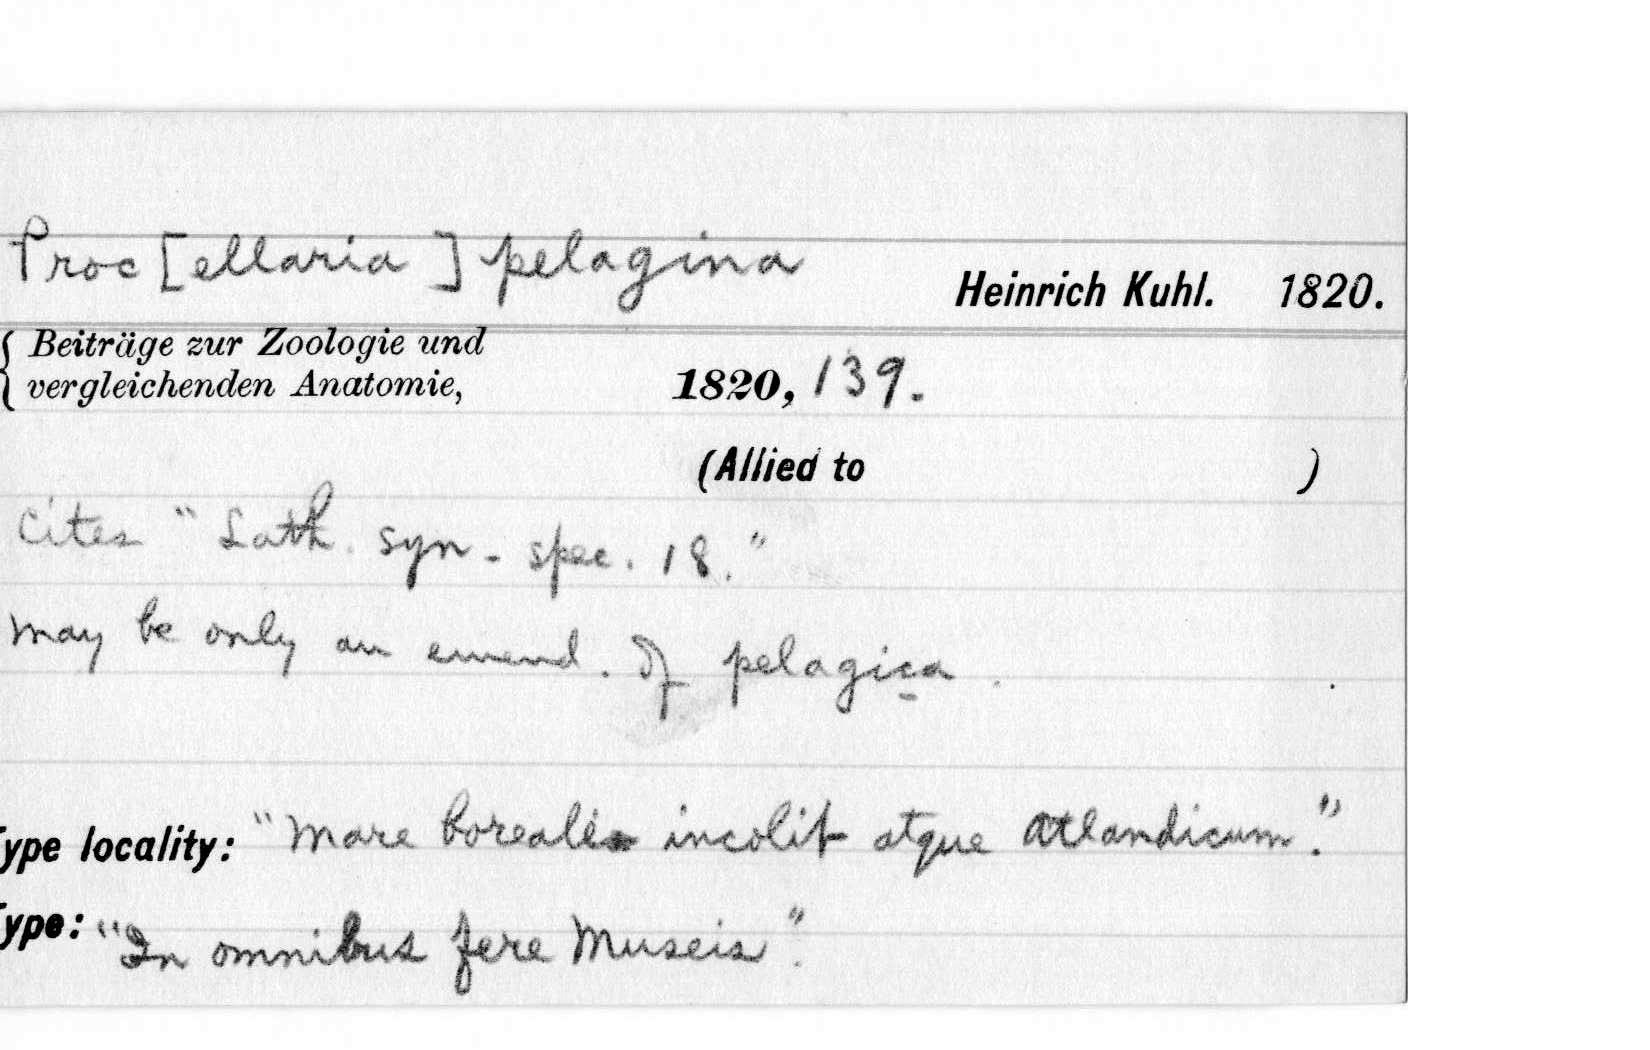 Proc [ellaria] pelagina
Heinrich Kuhl. 1820.
Beiträge zur Zoologie und
vergleichenden Anatomie, 1820, 139.
(Allied to )
Cites "Lath. syn - spec. 18."
may be only an emend. of pelagica.
ype locality: "Mare boreale incolit atque Atlandicum."
ype: "In omnibus fere Museis".